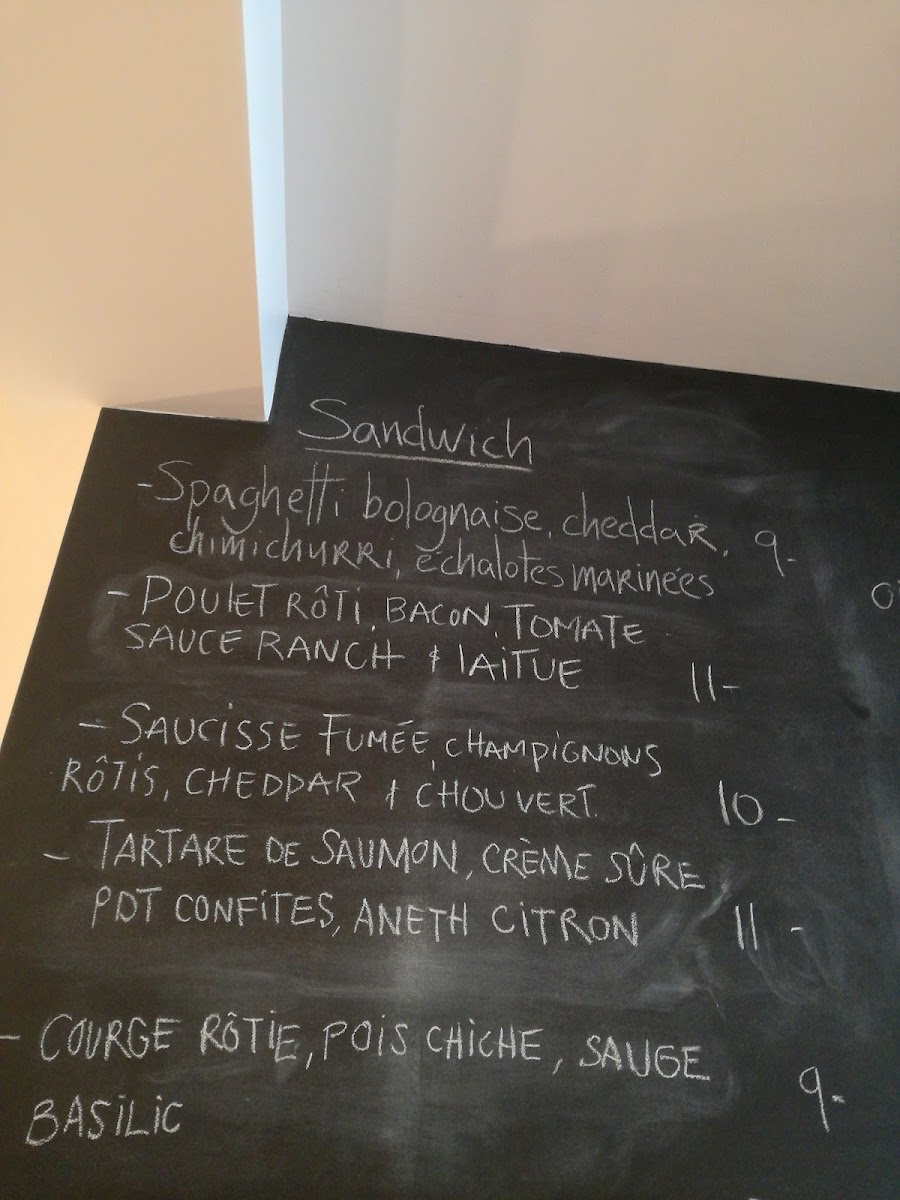 Sandwich
-Spaghetti bolognaise, cheddar, 9-
chimichurri, échalotes marinées
- POULET RÔTI, BACON, TOMATE
SAUCE RANCH & LAITUE 11-
- SAUCISSE FUMÉE, CHAMPIGNONS
RÔTIS, CHEDDAR & CHOU VERT. 10-
- TARTARE DE SAUMON, CRÈME SÛRE
PDT CONFITES, ANETH CITRON 11-
- COURGE RÔTIE, POIS CHICHE, SAUGE
BASILIC 9-